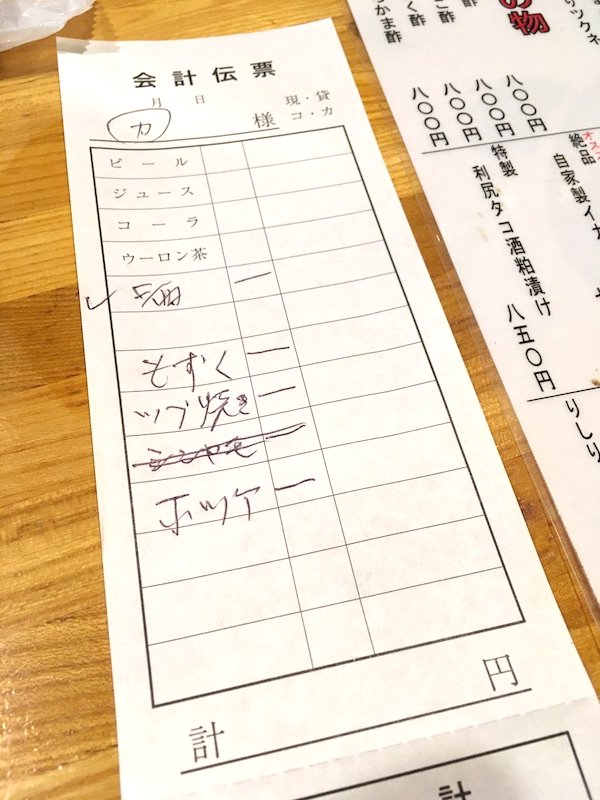 会計伝票
月 日 現・貸
カ 様 コ・カ
ビール
ジュース
コーラ
ウーロン茶
一
もずく 一
ツブ焼き 一
シシャモ 一
ホッケ 一
計 円
計
の物
かま酢
く酢
こ酢
酢
八〇〇円
八〇〇円
八〇〇円
八〇〇円
ツクネ
オススメ
絶品
自家製イカ
特製
利尻タコ酒粕漬け 八五〇円
りしり